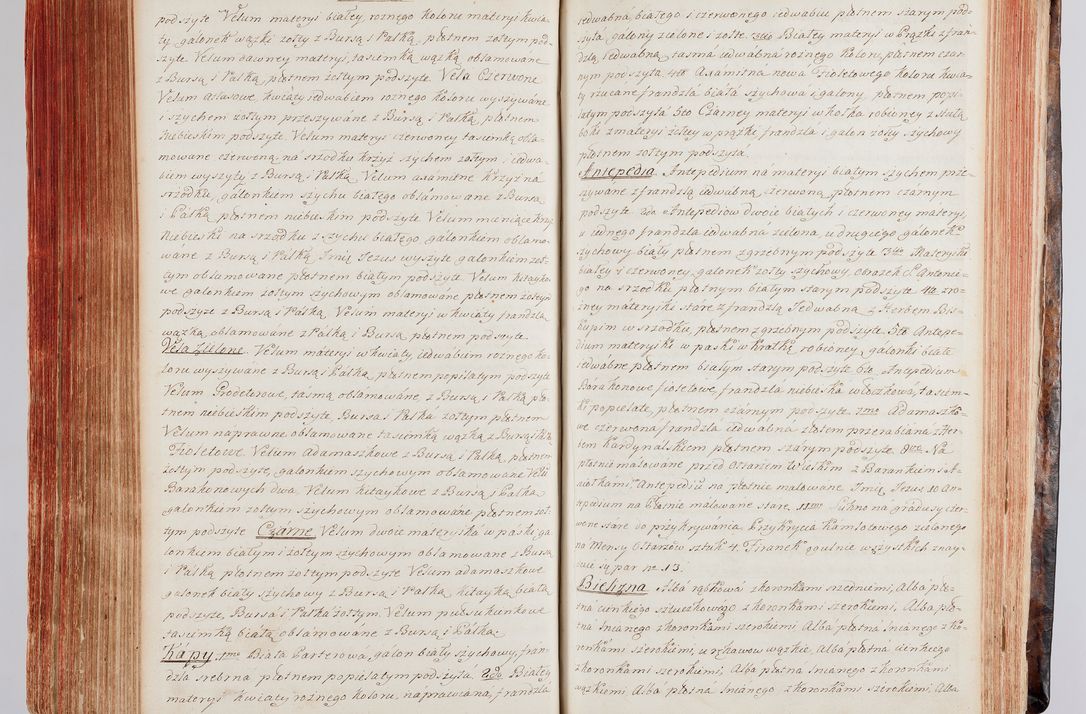 podszyte Velum materyi białey roznego koloru materyi kwia-
ty galonek wązki żołty z Bursą i Palką płotnem żołtym pod-
szyte Velum dawney materyi, tasiemką wązką oblamowane
z Bursą i Palką płotnem żołtym podszyte. Vela Czerwone
Velum atłasowe kwiaty iedwabiem roznego koloru wyszywane
i szychem żołtym przeszywane z Bursą i Palką płotnem
lubuskim podszyte Velum materyi czerwoney tasiemką obla-
mowane czerwoną, na srzodku krzyż szychem żołtym i iedwa-
biem wyszyty z Bursą i Palką Velum axamitne krzyż na
srzodku, galonkiem szychu białego oblamowane z Bursą
i Palką płotnem niebieskim podszyte Velum mieniące krzyż
Niebieski na srzodku z szychu białego galonkiem oblamo-
wane z Bursą i Palką Imię Iezus wyszyte galonkiem żoł-
tym oblamowane płotnem białym podszyte Velum kitayko-
we galonkiem żołtym szychowym oblamowane płotnem żołtym
podszyte z Bursą i Palką, Velum materyi w kwiaty frandzlą
wązką oblamowane z Palką i Bursą płotnem podszyte
Vela Zielone. Velum materyi w kwiaty, iedwabiem roznego ko-
loru wyszywane z Bursą i Palką płotnem popielatym podszyte
Velum Grodeturowe, tasmą oblamowane, z Bursą i Palką pło-
tnem niebieskim podszyte, Bursa i Palka żołtym płotnem
Velum naprawne oblamowane tasiemką wązką z Bursą i Palką
Fioletowe. Velum Adamaszkowe z Bursą i Palką płotnem
żołtym podszyte, galonkiem szychowym oblamowane Vela
Barakonowych dwa, Velum kitaykowe z Bursą i Palką
galonkiem żołtym szychowym oblamowane płotnem żoł-
tym podszyte Czárne Velum dwoie materyiska w paski ga-
lonkiem białym i żołtym szychowym oblamowane z Bursą
i Palką płotnem żołtym podszyte Velum adamaszkowe
galonek biały szychowy z Bursą i Palką kitayką białą
podszyte, Bursa i Palka żołtym. Velum pułsukunkowe
tasiemką białą oblamowane z Bursą i Palką.
Kapy. 1mo Biała Parterowa, galon biały szychowy, fran-
dzla srebrna płotnem popielatym podszyta. 2do Białey
materyi kwiaty rożnego koloru, naprawiana, frandzla
iedwabna białego i czerwonego iedwabiu płotnem szarym pod-
szyta galony zielone i żołte. 3tio Białey materyi w prążki z fran-
dzlą iedwabną, tasmá iedwabna rożnego koloru, płotnem czar-
nym podszyta 4to Axamitna nowa Fioletowego koloru kwia-
ty rzucane frandzla biała szychowa i galony, płotnem popie-
latym podszyta 5to Czarney materyi w kostkę robioney z stułą
boki z materyi żołtey w prążki frandzla i galon żołty szychowy
płotnem żołtym podszyta.
Antepedia. Antepedium na materyi białym szychem prze-
szywane z frandzlą iedwabną czerwoną płotnem czarnym
podszyte. 2do Antepediow dwoie białych i czerwoney materyi,
u iednego frandzla iedwabna zielona, u drugiego galonek
szychowy biały płotnem zgrzebnym podszyte 3tio Materyiski
białey i czerwoney galonek żołty szychowy, obrazek S. Antonie-
go na srzodku płotnem białym starym podszyte 4to z ro-
żney materyiki stare z frandzlą Iedwabną z Herbem Bis-
kupim w srzodku, płotnem zgrzebnym podszyte. 5to Antepe-
dium materyiki w paski w kratkę robioney, galonki białe
iedwabne płotnem białym starym podszyte 6to Antepedium
Barakonowe fioletowe, frandzla niebieska włoczkowa, tasiem-
ki popielate, płotnem czarnym podszyte. 7mo Adamaszko-
we czerwona frandzla iedwabna złotem przerabiana z Her-
bem Kardynalskiem płotnem szarym podszyte. 8vo Na
płotnie malowane przed Ołtarzem Wielkim z Barankiem i A-
niołkami Antepedium na płotnie malowane Imię Iezus. 10 An-
tepedium na płotnie malowane stare. 11mo Sukno na gradusy czer-
wone stare do przykrywania Przykrycia kamlotowego zielonego
na Mensy Ołtarzów sztuk 4. Firanek goulnie wszystkich znay-
duie się par nr 13.
Bielizna. Alba rąbkowa z koronkami srzedniemi, Alba pło-
tna cienkiego sztuczkowego z koronkami szerokiemi, Alba pło-
tna lnianego z koronkami szerokiemi Alba płotna lnianego z ko-
ronkami szerokiemi, u rękawow wązkie, Alba płotna cienkiego
z koronkami szerokiemi, Alba płotna lnianego z koronkami
wązkiemi Alba płotna lnianego z koronkami szerokiemi, Alba